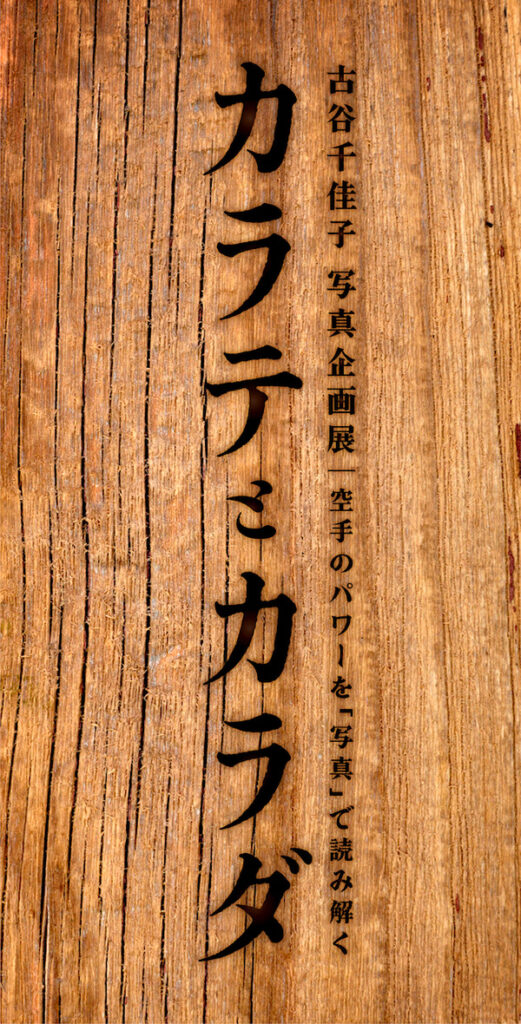 古谷千佳子 写真企画展|空手のパワーを「写真」で読み解く
カラテとカラダ